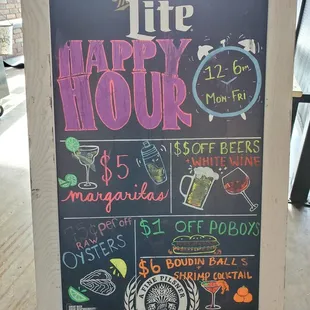 Lite
HAPPY
HOUR
12-6pm
MON-FRI
$5
margaritas
$$ OFF BEERS
WHITE WINE
per off
RAW
OYSTERS
$1 OFF POBOYS
$6 BOUDIN BALLS
SHRIMP COCKTAIL
A FINE PILSNER